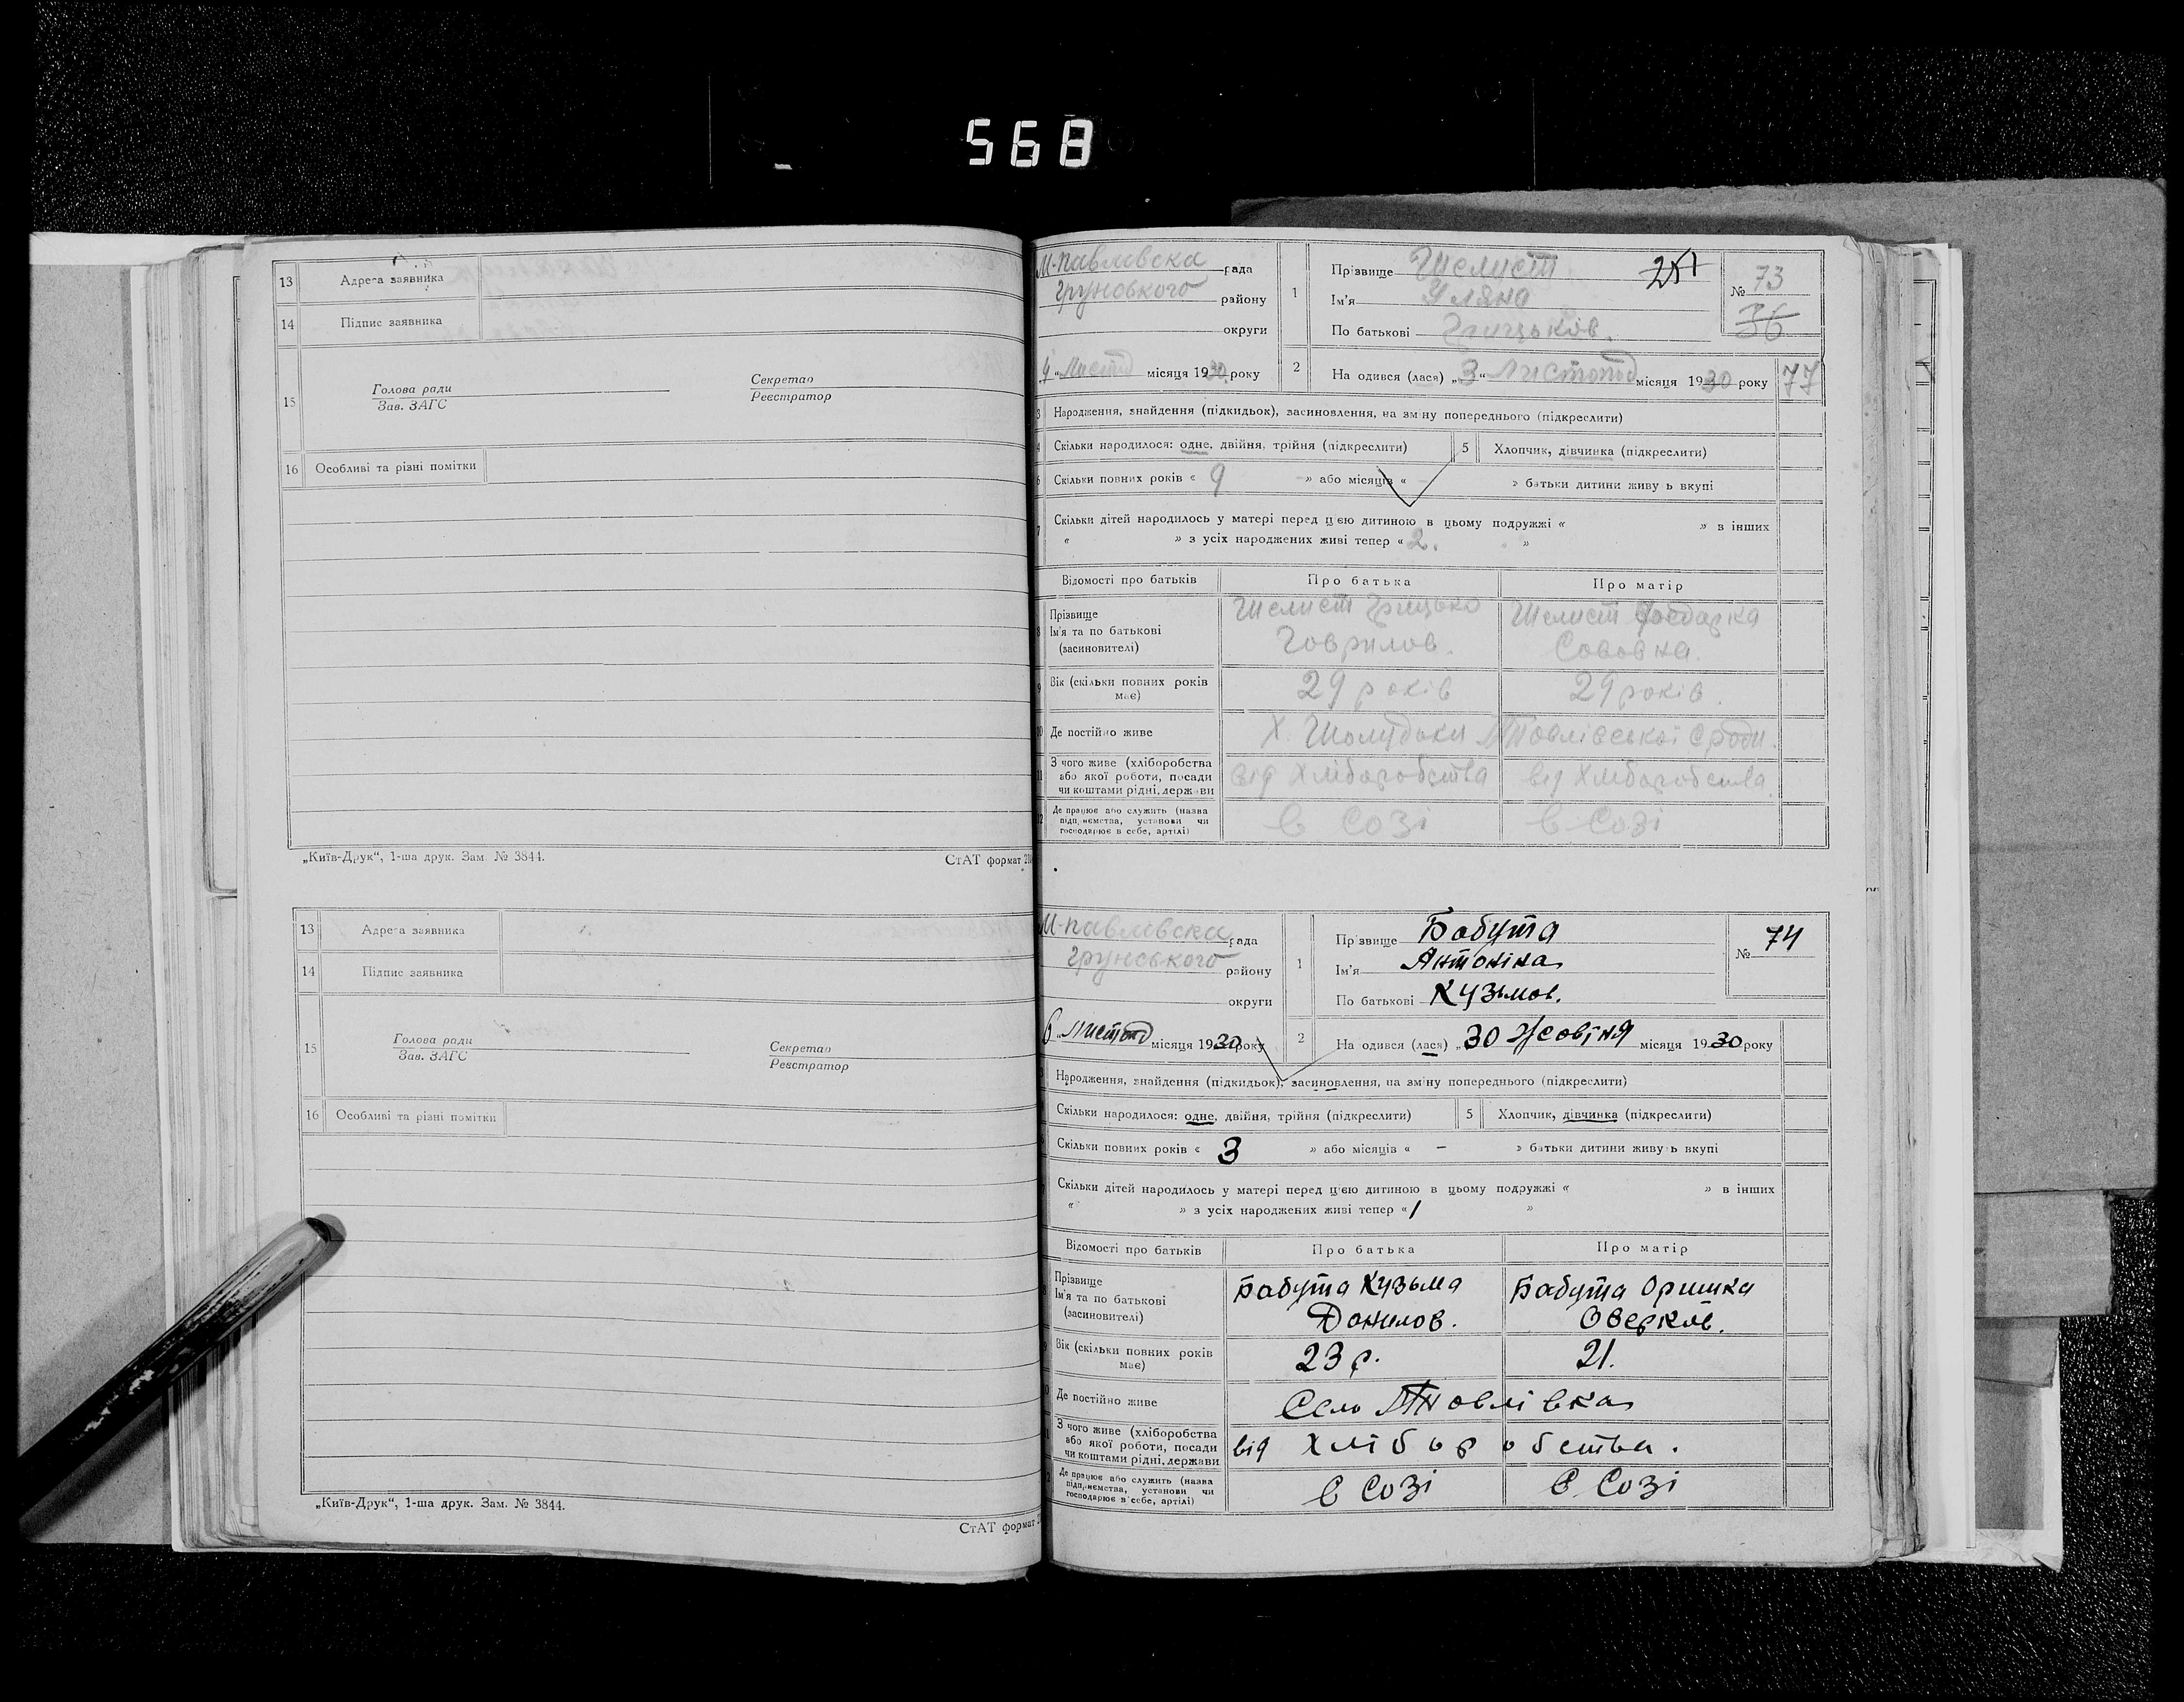 568
13 Адреса заявника
14 Підпис заявника
15 Голова ради
Зав. ЗАГС
Секретар
Реєстратор
16 Особливі та різні помітки
„Київ-Друк“, 1-ша друк. Зам. № 3844.
СтАТ формат
М-павлевска рада
Груновкого району
округи
4 „ Листод місяця 1930 року
1 Прізвище Шелист
Ім'я Уляна
По батькові Грицьков.
251
№ 73
36
2 На одився (лася) „3“ Листопод місяця 1930 року
77
3 Народження, знайдення (підкидьок), засиновлення, на зміну попереднього (підкреслити)
4 Скільки народилося: одне, двійня, трійня (підкреслити)
5 Хлопчик, дівчинка (підкреслити)
6 Скільки повних років « 9 » або місяців « - » батьки дитини живу ь вкупі
7 Скільки дітей народилось у матері перед цією дитиною в цьому подружжі « » в інших
« » з усіх народжених живі тепер « 2. »
Відомості про батьків
Про батька
Про матір
8 Прізвище
Ім'я та по батькові
(засиновителі)
Шелист Грицько
Говрилов.
Шелист
Сововна.
9 Вік (скільки повних років має)
29 років
29 років.
10 Де постійно живе
Х. Шолудьки МПовлівської с роди.
11 З чого живе (хліборобства
або якої роботи, посади
чи коштами рідні, держави
від Хліборобства
від Хліборобства.
12 Де працює або служить (назва
підприємства, установи чи
господарює в себе, артілі)
в Созі
в Созі
13 Адреса заявника
14 Підпис заявника
15 Голова ради
Зав. ЗАГС
Секретар
Реєстратор
16 Особливі та різні помітки
„Київ-Друк“, 1-ша друк. Зам. № 3844.
СтАТ формат
М-павлевска рада
Грунського району
округи
6 „ Листод місяця 1930 року
1 Прізвище Бобута
Ім'я Антоніна
По батькові Кузьмов.
№ 74
2 На одився (лася) „30 Жовтня місяця 1930 року
Народження, знайдення (підкидьок), засиновлення, на зміну попереднього (підкреслити)
Скільки народилося: одне, двійня, трійня (підкреслити)
5 Хлопчик, дівчинка (підкреслити)
Скільки повних років « 3 » або місяців « - » батьки дитини живу ь вкупі
Скільки дітей народилось у матері перед цією дитиною в цьому подружжі « » в інших
« » з усіх народжених живі тепер « 1 »
Відомості про батьків
Про батька
Про матір
Прізвище
Ім'я та по батькові
(засиновителі)
Бобута Кузьма
Донилов.
Бобута Оришка
Оверков.
Вік (скільки повних років має)
23 р.
21.
Де постійно живе
Село МПовлівка
З чого живе (хліборобства
або якої роботи, посади
чи коштами рідні, держави
від Хліборобства.
Де працює або служить (назва
підприємства, установи чи
господарює в себе, артілі)
в Созі
в Созі